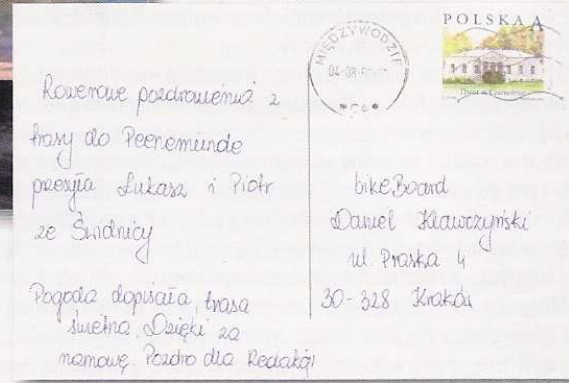 POLSKA A
MIĘDZYWODZIE
04-08-
Rowerowe pozdrowienia z
trasy do Peenemunde
przesyła Łukasz i Piotr
ze Świdnicy
Pogoda dopisała, trasa
świetna. Dzięki za
namowę. Pozdro dla Redakcji
bikeBoard
Daniel Klawczyński
ul. Praska 4
30-328 Kraków